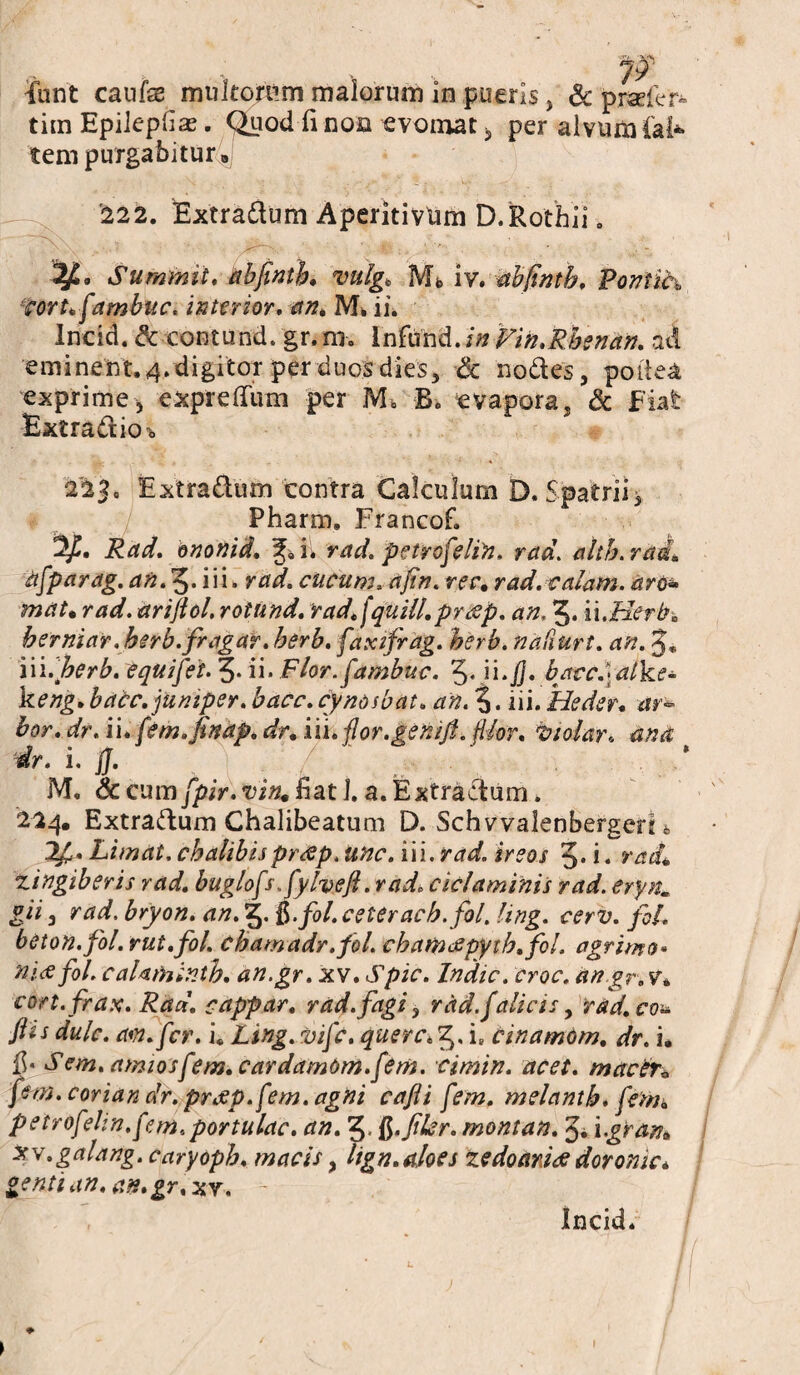 79
sunt causæ multorum malorum in pueris, & præser-
tim Epilepsiæ. Quod si non evomat, per alvum sal-
tem purgabitur.
222. Extractum Aperitivum D. Rothii.
℞. Summit. absinth. vulg. M. iv. absinth. Pontic.
cort. sambuc. interior. an. M. ii.
Incid. & contund. gr. m. Infund. in Vin. Rhenan. ad
eminent. 4. digitor per duos dies, & noctes, postea
exprime, expressum per M. B. evapora, & Fiat
Extractio.
223. Extractum contra Calculum D. Spatrii,
Pharm. Francof.
℞. Rad. ononid. ℥. i. rad. petroselin. rad. alth. rad.
asparag. an. ʒ. iii. rad. cucum. asin. rec. rad. calam. aro-
mat. rad. aristol. rotund. rad. squill. præp. an. ʒ. ii. Herb.
herniar. herb. fragar. herb. saxifrag. herb. nasturt. an. ʒ.
iii. herb. equiset. ʒ. ii. Flor. sambuc. ʒ. ii. ß. bacc. alke-
keng. bacc. juniper. bacc. cynosbat. an. ʒ. iii. Heder. ar-
bor. dr. ii. sem. sinap. dr. iii. flor. genist. flor. violar. ana
dr. i. ß.
M. & cum spir. vin. fiat l. a. Extractum.
224. Extractum Chalibeatum D. Schvvalenbergeri.
℞. Limat. chalibis præp. unc. iii. rad. ireos ʒ. i. rad.
zingiberis rad. bugloss. sylvest. rad. ciclaminis rad. eryn-
gii, rad. bryon. an. ʒ. ß. fol. ceterach. fol. ling. cerv. fol.
beton. fol. rut. fol. chamadr. fol. chamæpyth. fol. agrimo-
niæ fol. calaminth. an. gr. xv. Spic. Indic. croc. an gr. v.
cort. frax. Rad. cappar. rad. fagi, rad. salicis, rad. co-
stis dulc. am. scr. i. Ling. visc. querc. ʒ. i. cinamom. dr. i.
ß. Sem. amios sem. cardamom. sem. cimin. acet. macer.
sem. corian dr. præp. sem. agni casti sem. melanth. sem.
petroselin. sem. portulac. an. ʒ. ß. siler. montan. ʒ. i. gran.
xv. galang. caryoph. macis, lign. aloes zedoariæ doronic.
gentian. an. gr. xv.
Incid.